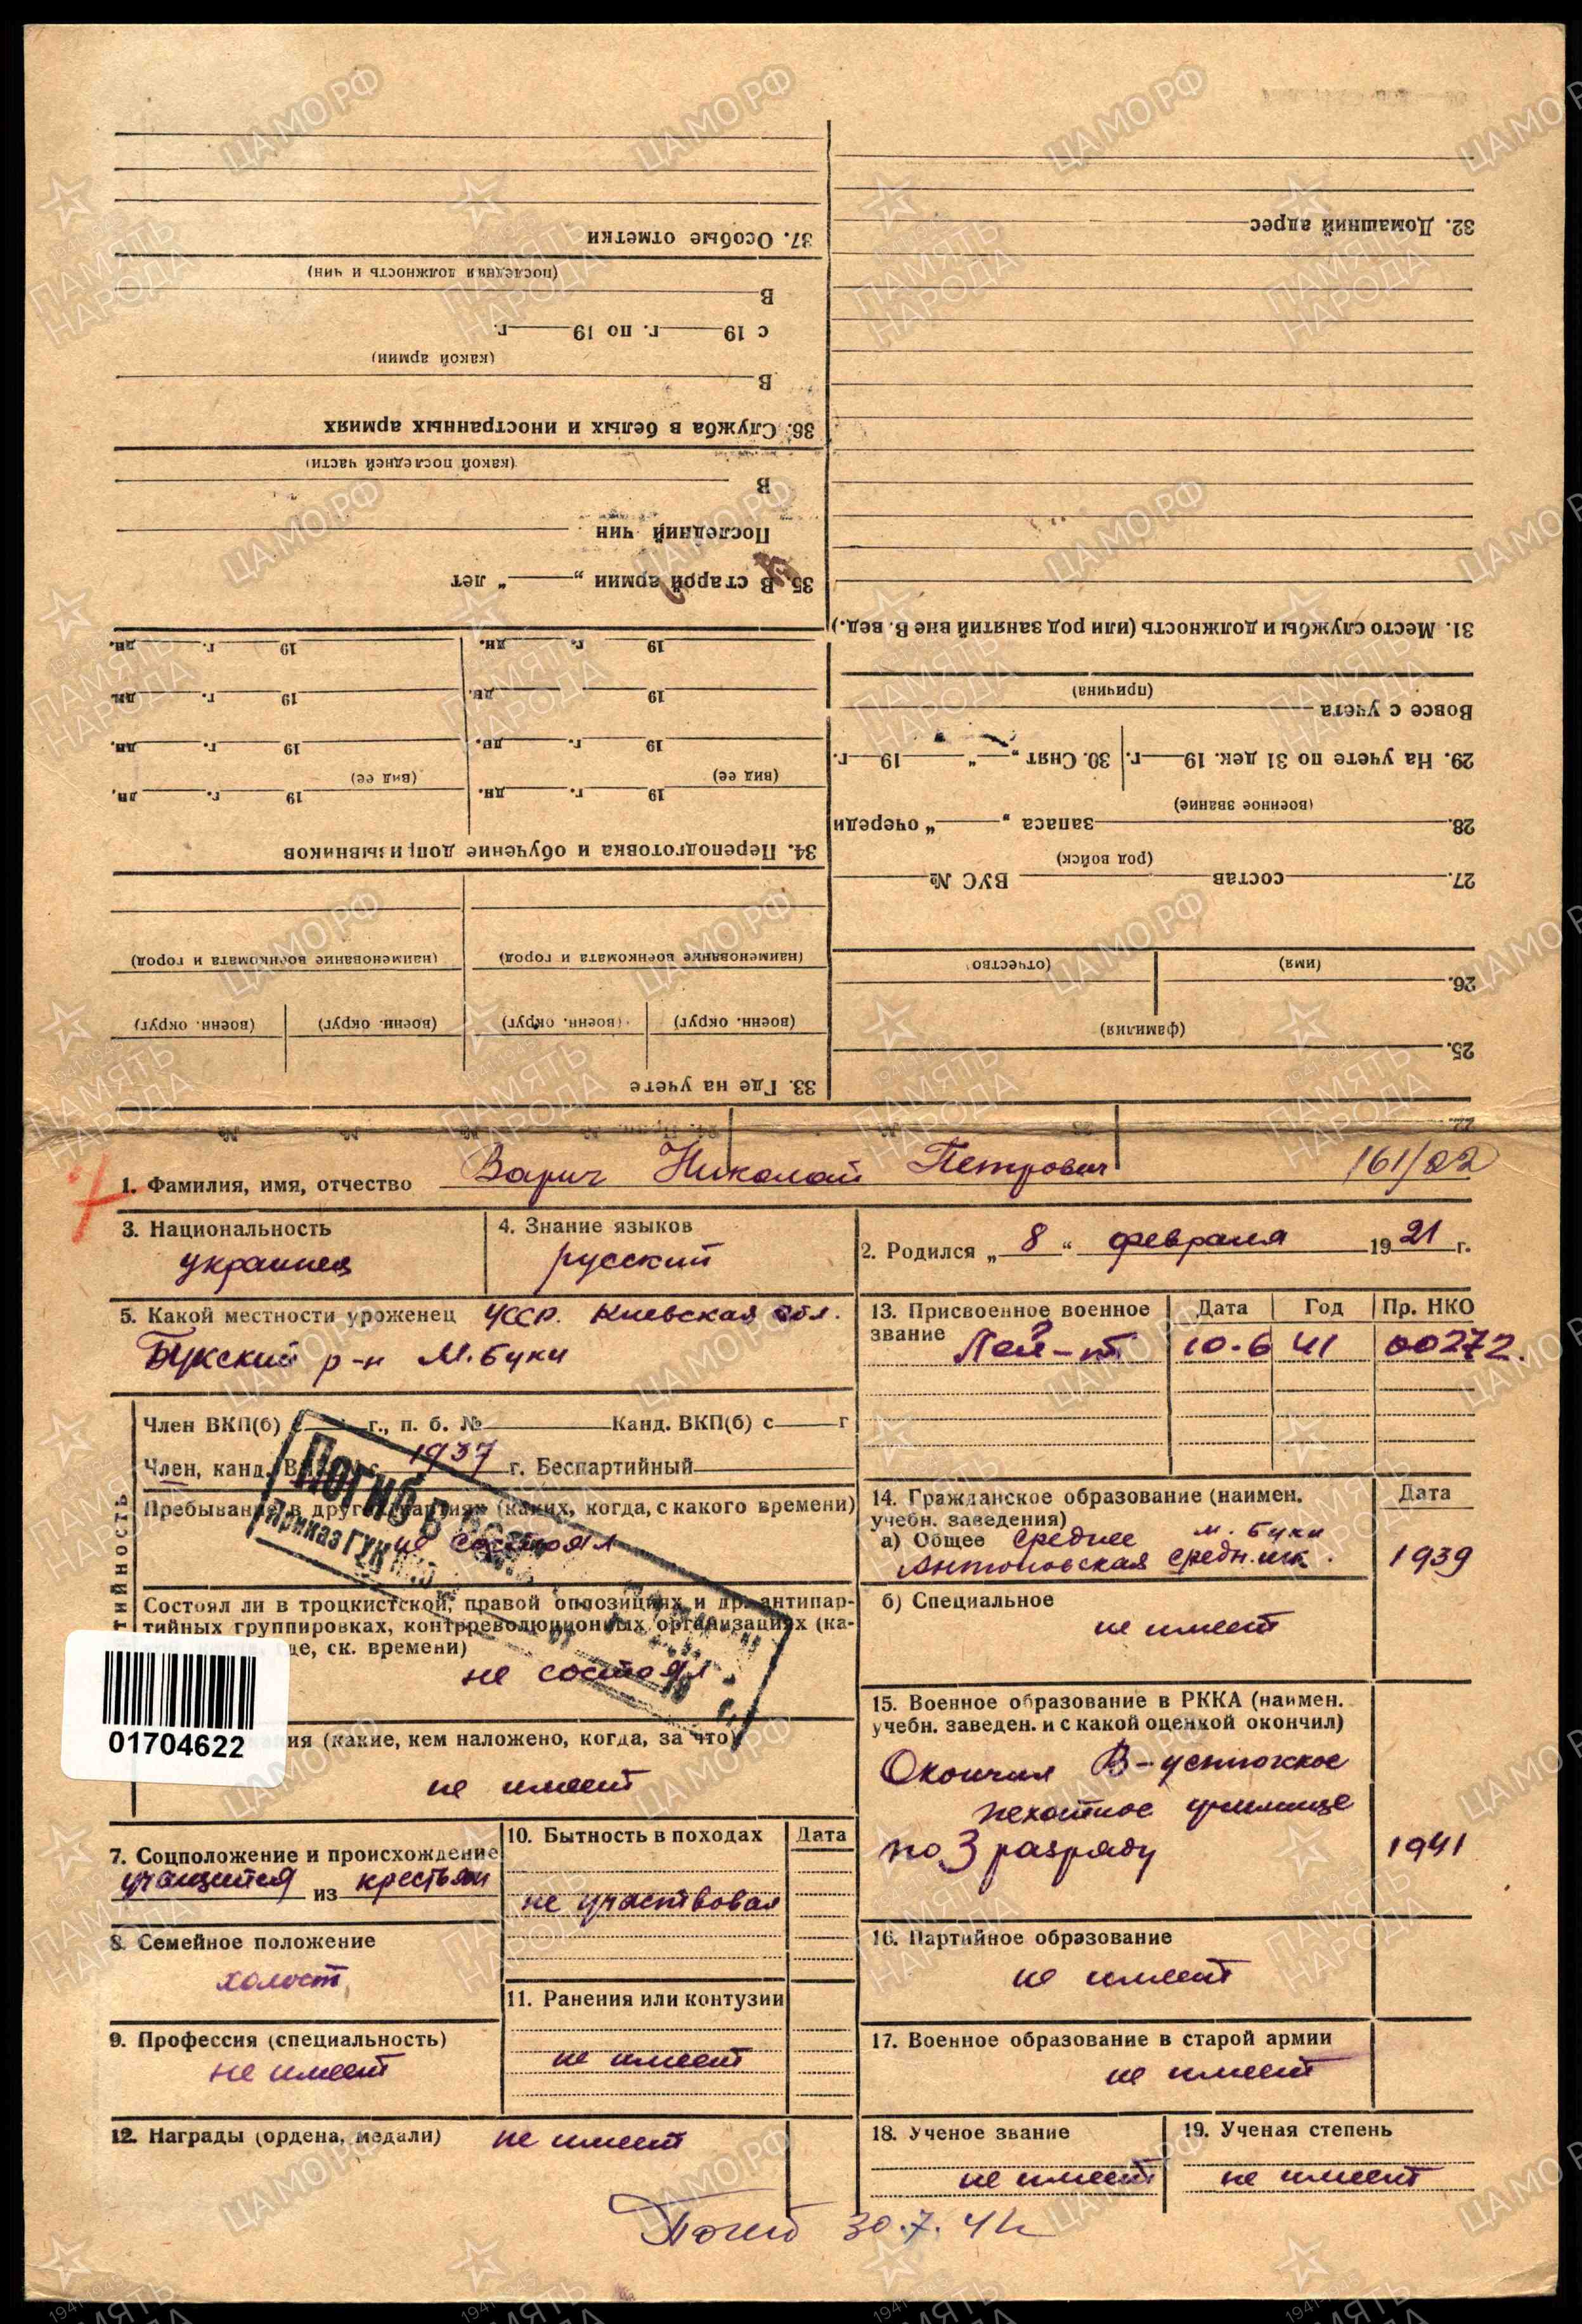 37. Особые отметки
(последняя должность и чин)
В
с 19 г. по 19 г.
(какой армии)
В
36. Служба в белых и иностранных армиях
(какой последней части)
В
Последний чин
35. В старой армии „ “ лет
19 г. дн. 19 г. дн.
19 г. дн. 19 г. дн.
19 г. дн. 19 г. дн.
(вид ее) (вид ее)
19 г. дн. 19 г. дн.
34. Переподготовка и обучение допризывников
(наименование военкомата и город) (наименование военкомата и город)
(военн. округ) (военн. округ) (военн. округ) (военн. округ)
33. Где на учете
32. Домашний адрес
31. Место службы и должность (или род занятий вне В. вед.)
(причина)
Вовсе с учета
29. На учете по 31 дек. 19 г. 30. Снят „ “ 19 г.
(военное звание)
28. запаса „ “ очереди
(род войск)
27. состав ВУС №
(имя) (отчество)
26.
(фамилия)
25.
1. Фамилия, имя, отчество Варич Николай Петрович 161/22
3. Национальность
украинец
4. Знание языков
русский
2. Родился „ 8 “ февраля 1921 г.
5. Какой местности уроженец УССР. Киевская обл.
Букский р-н М. Буки
13. Присвоенное военное звание Дата Год Пр. НКО
Лей-т 10.6 41 00272.
Член ВКП(б) с г., п. б. № Канд. ВКП(б) с г
Член, канд. В 1937 г. Беспартийный
Пребывание в других партиях (каких, когда, с какого времени)
не состоял
Погиб в
Приказ ГУК
Состоял ли в троцкистской, правой оппозициях и др. антипар-
тийных группировках, контрреволюционных организациях (ка-
де, ск. времени)
не состоял
ия (какие, кем наложено, когда, за что)
не имеет
01704622
14. Гражданское образование (наимен. Дата
учебн. заведения)
а) Общее Среднее м. Буки
Антоновская средн. шк. 1939
б) Специальное
не имеет
15. Военное образование в РККА (наимен.
учебн. заведен. и с какой оценкой окончил)
Окончил В-Устюжское
пехотное училище
по 3 разряду 1941
7. Соцположение и происхождение
учащийся из крестьян
8. Семейное положение
холост
9. Профессия (специальность)
не имеет
10. Бытность в походах Дата
не участвовал
11. Ранения или контузии
не имеет
12. Награды (ордена, медали) не имеет
16. Партийное образование
не имеет
17. Военное образование в старой армии
не имеет
18. Ученое звание
не имеет
19. Ученая степень
не имеет
Погиб 30.7.42
ЦАМО.РФ
ПАМЯТЬ НАРОДА
1941-1945